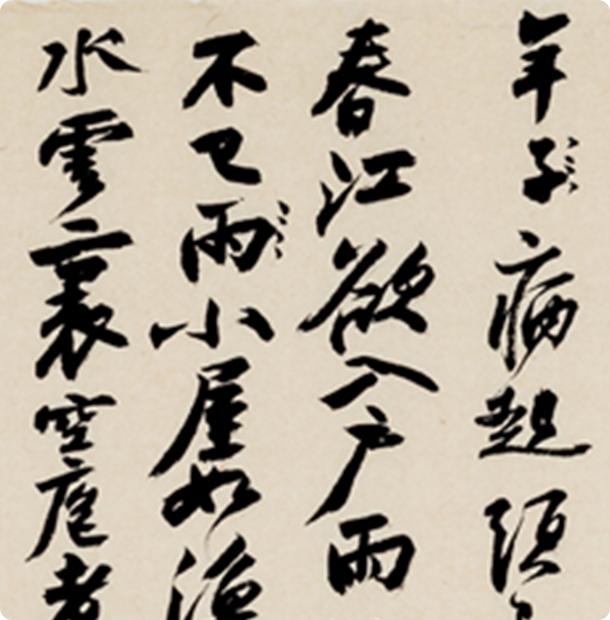 年子病起頭
春江欲入戶雨
不已雨小屋如漁
水雲裏空庖煮